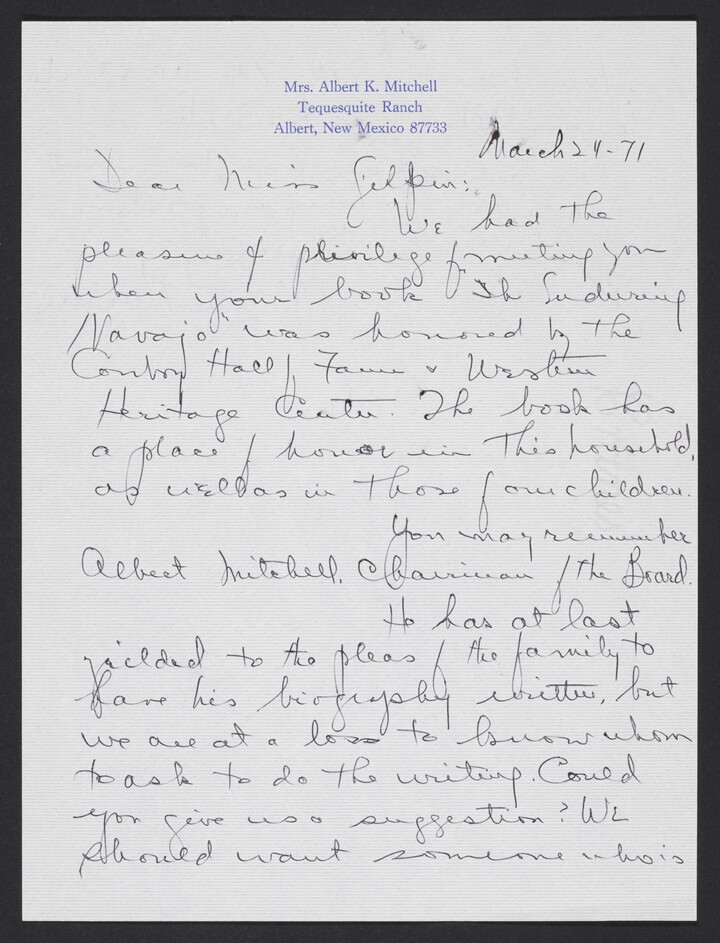 Mrs. Albert K. Mitchell
Tequesquite Ranch
Albert, New Mexico 87733
March 24-71
Dear Miss Gilpin:
We had the
pleasure & privilege of meeting you
when your book "The Enduring
Navajo" was honored by the
Cowboy Hall of Fame & Western
Heritage Center. The book has
a place of honor in this household,
as well as in those of our children.
You may remember
Albert Mitchell, Chairman of the Board.
He has at last
yielded to the pleas of the family to
have his biography written, but
we are at a loss to know whom
to ask to do the writing. Could
you give us a suggestion? We
should want someone who is